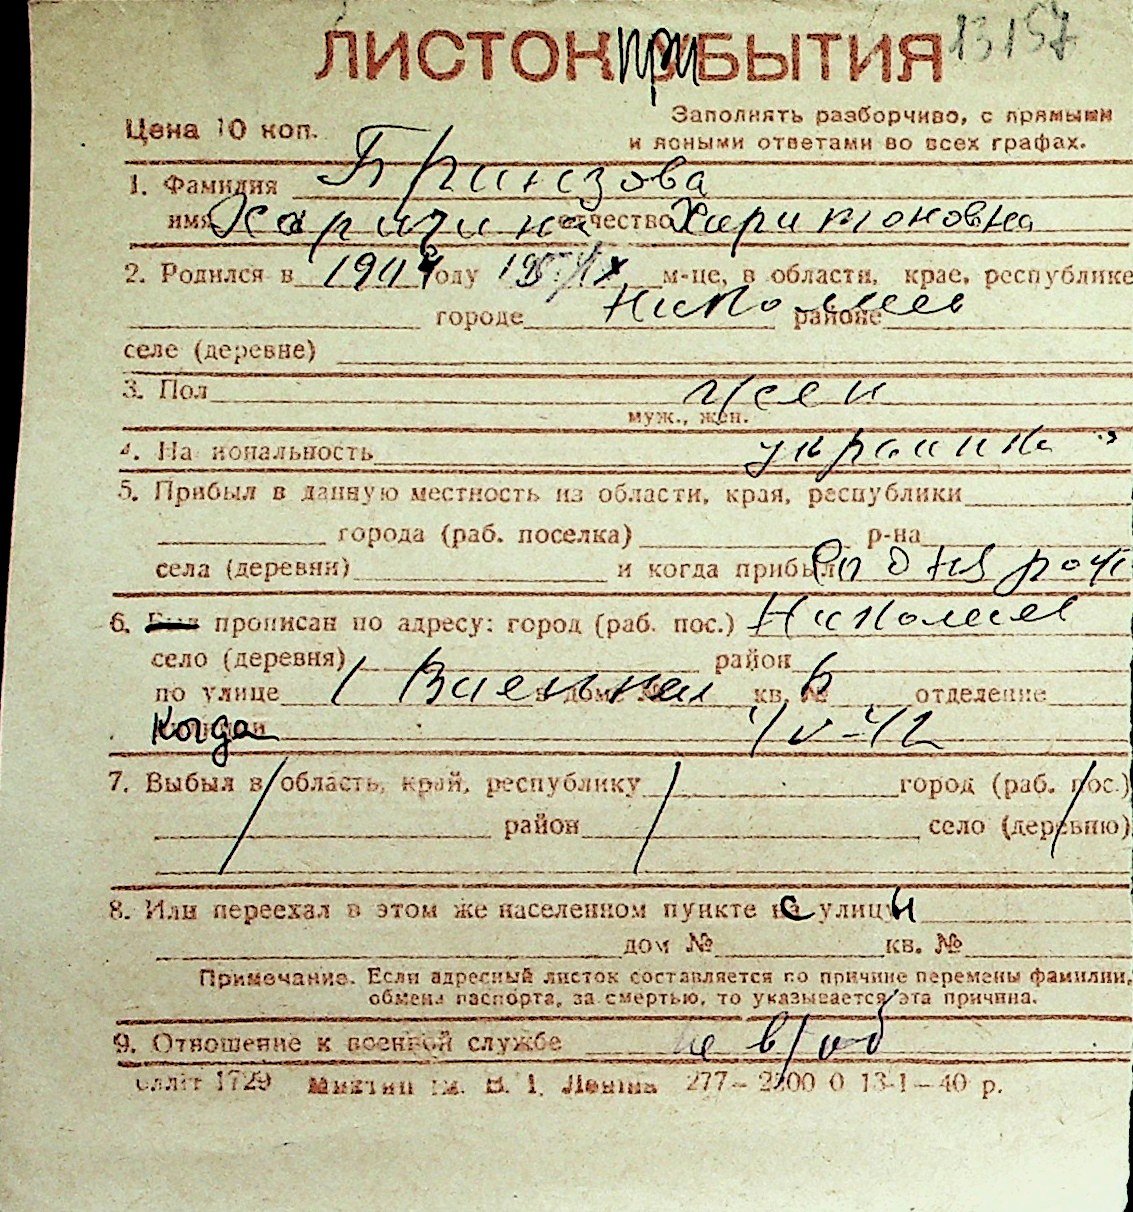 ЛИСТОК ПРИБЫТИЯ 13157
Цена 10 коп.
Заполнять разборчиво, с прямыми
и ясными ответами во всех графах.
1. Фамилия Бринзова
имя отчество Харитоновна
2. Родился в году м-це, в области, крае, республике
городе Николаев районе
селе (деревне)
3. Пол жен
муж., жен.
4. Национальность украинка
5. Прибыл в данную местность из области, края, республики
города (раб. поселка) р-на
села (деревни) и когда прибыл со дня рож
6. прописан по адресу: город (раб. пос.) Николаев
село (деревня) район
по улице 1 Военная в доме № кв. № 6 отделение
Когда
7. Выбыл в область, край, республику город (раб. пос.)
район село (деревню)
8. Или переехал в этом же населенном пункте с улицы
дом № кв. №
Примечание. Если адресный листок составляется по причине перемены фамилии,
обмена паспорта, за смертью, то указывается эта причина.
9. Отношение к военной службе не в/об
1729 им. В. І. Леніна 277–2500 0 13-1–40 р.